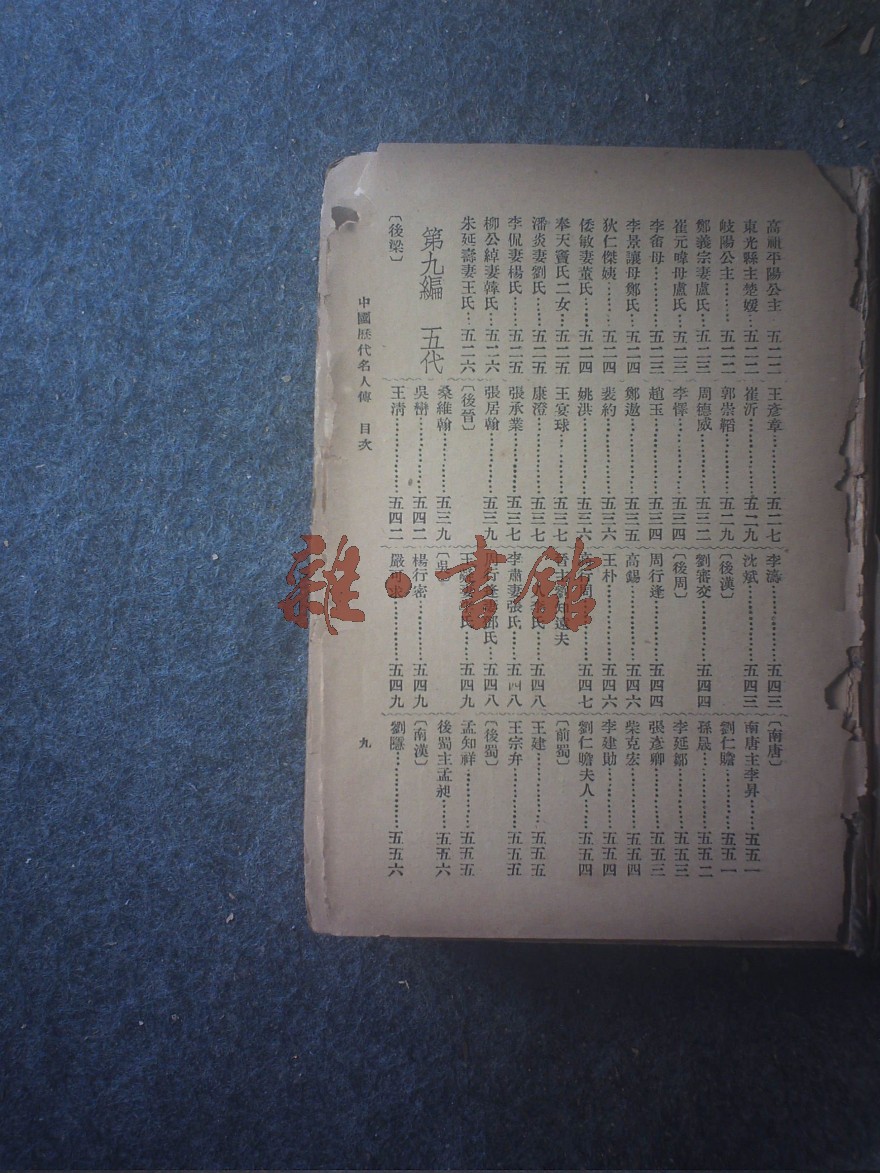 高祖平陽公主 五二二
東光縣主楚媛…五二二
岐陽公主………五二二
鄭義宗妻盧氏…五二三
崔元暐母盧氏…五二三
李畬母…………五二三
李景讓母鄭氏…五二四
狄仁傑姨………五二四
倭敏妻董氏……五二四
奉天竇氏二女…五二五
潘炎妻劉氏……五二五
李侃妻楊氏……五二五
柳公綽妻韓氏…五二六
朱延壽妻王氏…五二六
第九編 五代
〔後梁〕
王彥章…………五二七
崔沂……………五二九
郭崇韜…………五二九
周德威…………五三二
李懌……………五三四
趙玉……………五三四
鄭遨……………五三五
裴約……………五三六
姚洪……………五三六
王宴球…………五三七
康澄……………五三七
張承業…………五三七
張居翰…………五三九
〔後晉〕
桑維翰…………五三九
吳巒……………五四二
王清……………五四二
李濤……………五四三
沈斌……………五四三
〔後漢〕
劉審交…………五四四
〔後周〕
周行逢…………五四四
高錫……………五四六
王朴……………五四六
五四七
知遠夫
氏…五四八
李肅妻張氏……五四八
氏…五四八
五四九
〔吳〕
楊行密…………五四九
嚴可求…………五四九
〔南唐〕
南唐主李昇……五五一
劉仁贍…………五五一
孫晟……………五五二
李延鄒…………五五三
張彥卿…………五五三
柴克宏…………五五四
李建勛…………五五四
劉仁瞻夫人……五五四
〔前蜀〕
王建……………五五五
王宗弁…………五五五
〔後蜀〕
孟知祥…………五五五
後蜀主孟昶……五五六
〔南漢〕
劉隱……………五五六
中國歷代名人傳 目次
九
雜·書館